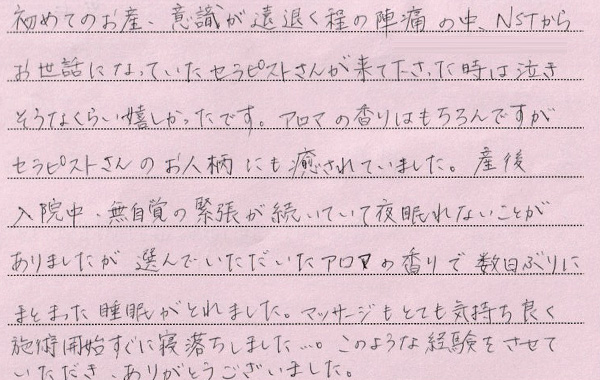 初めてのお産、意識が遠退く程の陣痛の中、NSTから
お世話になっていたセラピストさんが来て下さった時は泣き
そうなくらい嬉しかったです。アロマの香りはもちろんですが
セラピストさんのお人柄にも癒されていました。産後
入院中、無自覚の緊張が続いていて夜眠れないことが
ありましたが選んでいただいたアロマの香りで数日ぶりに
まとまった睡眠がとれました。マッサージもとても気持ち良く
施術開始すぐに寝落ちしました…。このような経験をさせて
いただき、ありがとうございました。